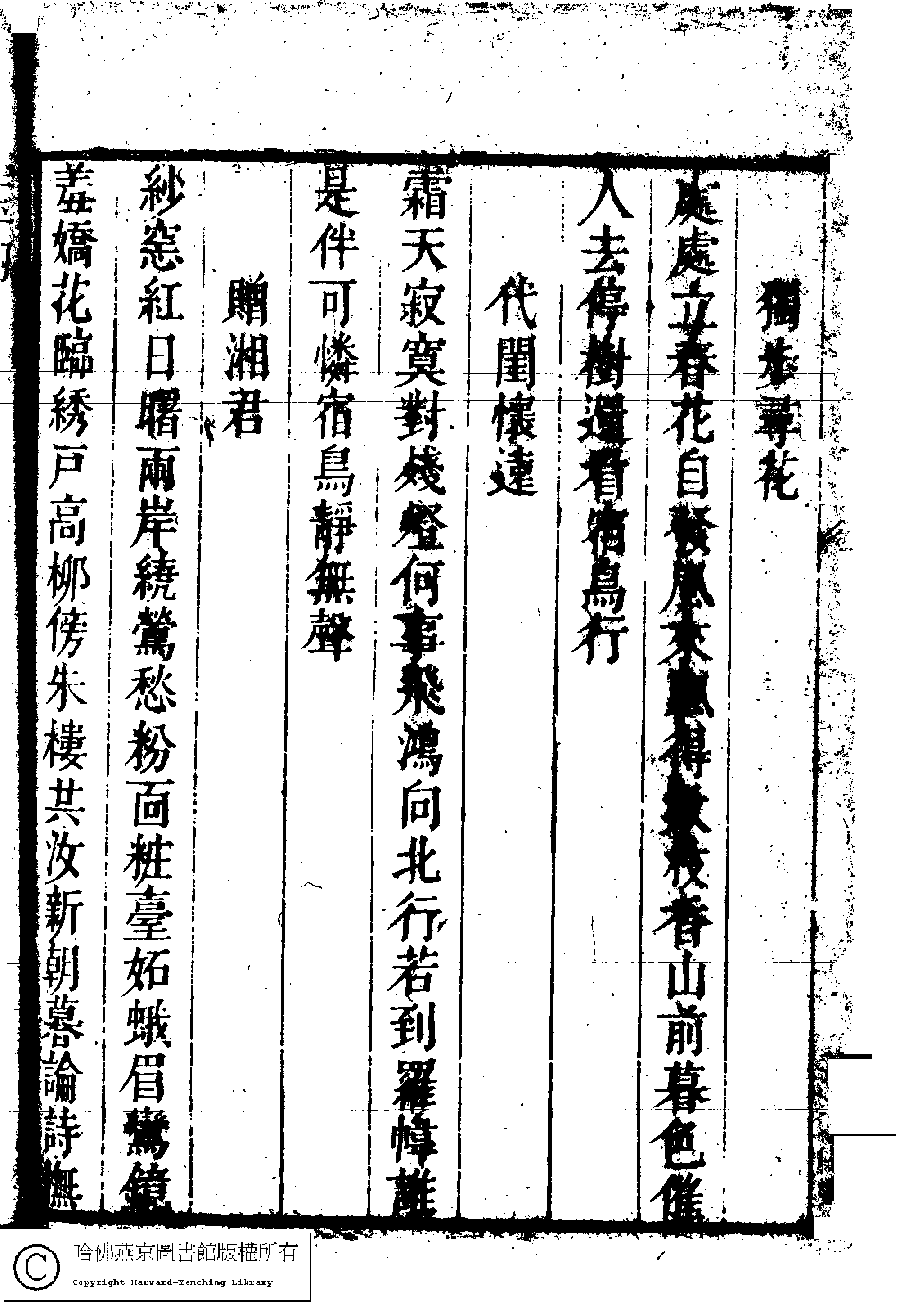 獨步尋花
處處立春花自發風來聽得數枝香山前暮色催
人去停樹還看宿鳥行
代閨懷遠
霜天寂寞對殘燈何事飛鴻向北行若到羅幃誰
是伴可憐宿鳥靜無聲
贈湘君
紗窓紅日曙兩岸繞鶯愁粉面粧臺妬蛾眉鸞鏡
羞嬌花臨綉戸高柳傍朱樓共汝新朝暮論詩撫
哈佛燕京圖書館版權所有
Copyright Harvard-Yenching Library